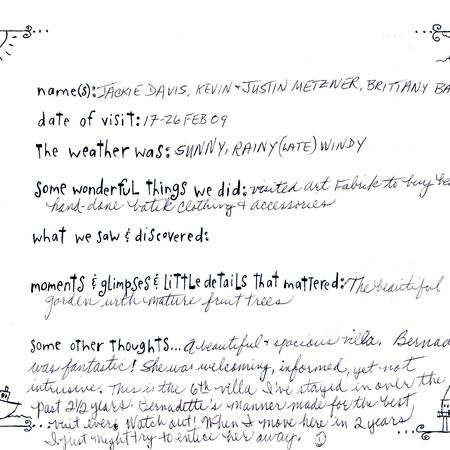 name(s): JACKIE DAVIS, KEVIN + JUSTIN METZNER, BRITTANY BA
date of visit: 17-26 FEB 09
The weather was: SUNNY, RAINY (LATE) WINDY
some wonderful things we did: visited Art Fabrik to buy be
hand-done batik clothing & accessories
what we saw & discovered:
moments & glimpses & little details that mattered: The beautiful
garden with mature fruit trees
some other thoughts... A beautiful + spacious villa. Bernad
was fantastic! She was welcoming, informed, yet not
intrusive. This is the 6th villa I've stayed in over the
past 2½ years. Bernadette's manner made for the best
visit ever. Watch out! When I move here in 2 years,
I just might try to entice her away. ☺